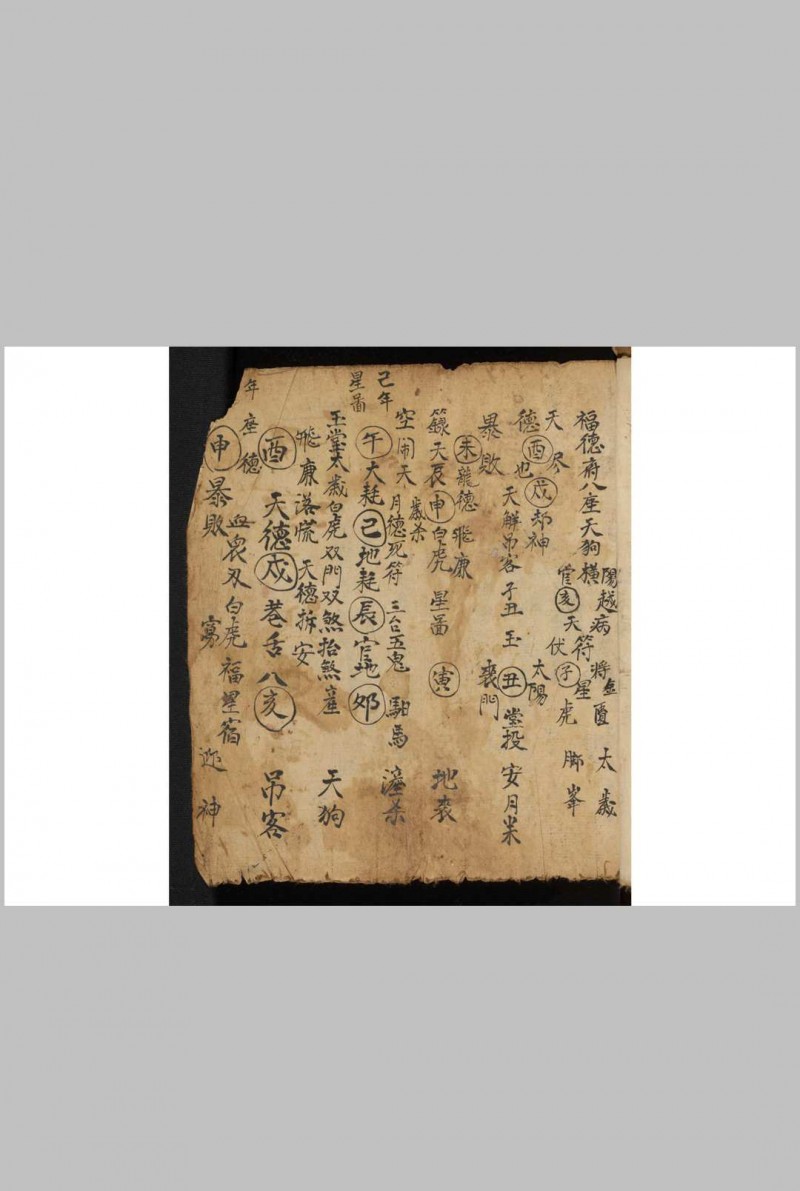 福德府八座天狗横
陽越病將
太歲
官亥天符
伏子星虎
脚峯
天尽
德酉也戌却神
太陽
天解吊客子丑玉丑堂投安月米
暴敗
喪門
未龍德飛康
籙天辰申白虎星啚寅地喪
歲杀
空闹天月德死符三台五鬼馹馬
己年
星啚
午大耗己地耗辰官地夘
玉堂太歲白虎双門双煞抬煞
天狗
飛康落慌天德拆安
酉天德戌巷舌八亥吊客
座德
年
血衾刄白虎福星宿
申暴敗寡迎神